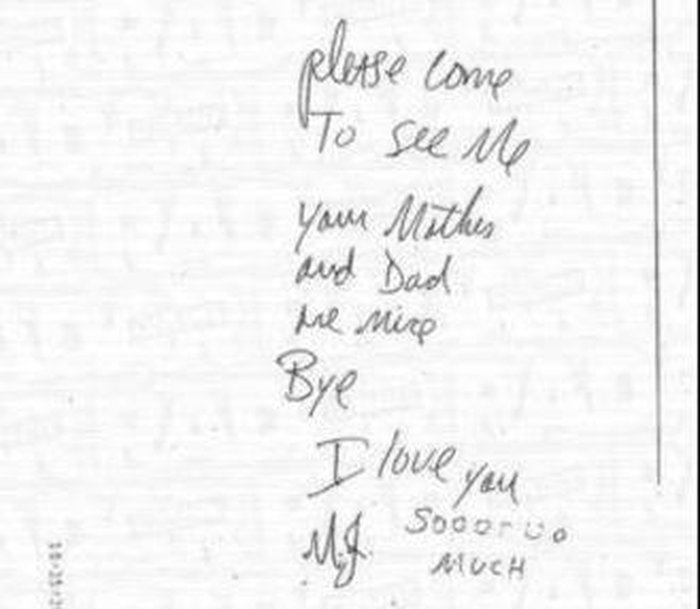 please come
To see Me
your Mother
and Dad
are nice
Bye
I love you
Soooo
M.J.
MUCH